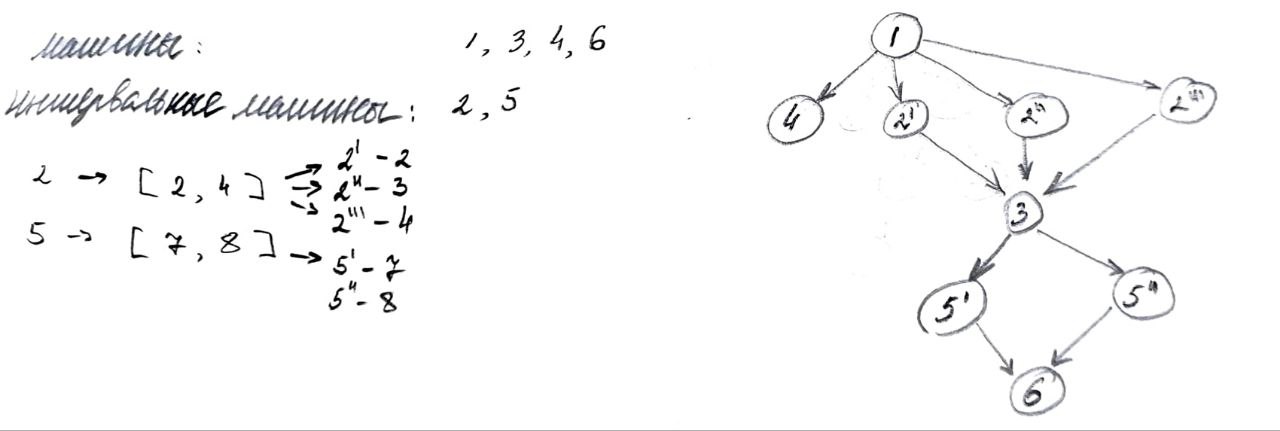 машины: 1, 3, 4, 6
интервальные машины: 2, 5
2 → [2, 4] → 2' - 2
→ 2'' - 3
→ 2''' - 4
5 → [7, 8] → 5' - 7
5'' - 8
1
4 2' 2'' 2'''
3
5' 5''
6